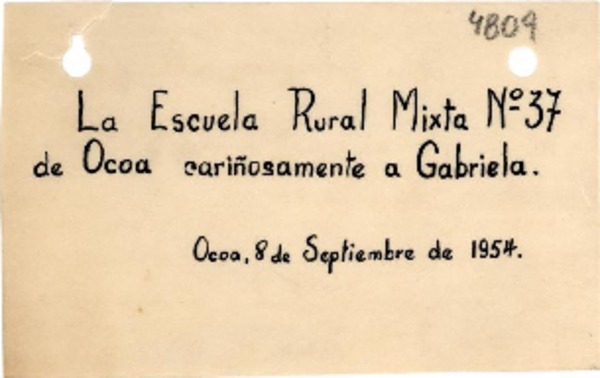 4809
La Escuela Rural Mixta Nº 37
de Ocoa cariñosamente a Gabriela.
Ocoa, 8 de Septiembre de 1954.